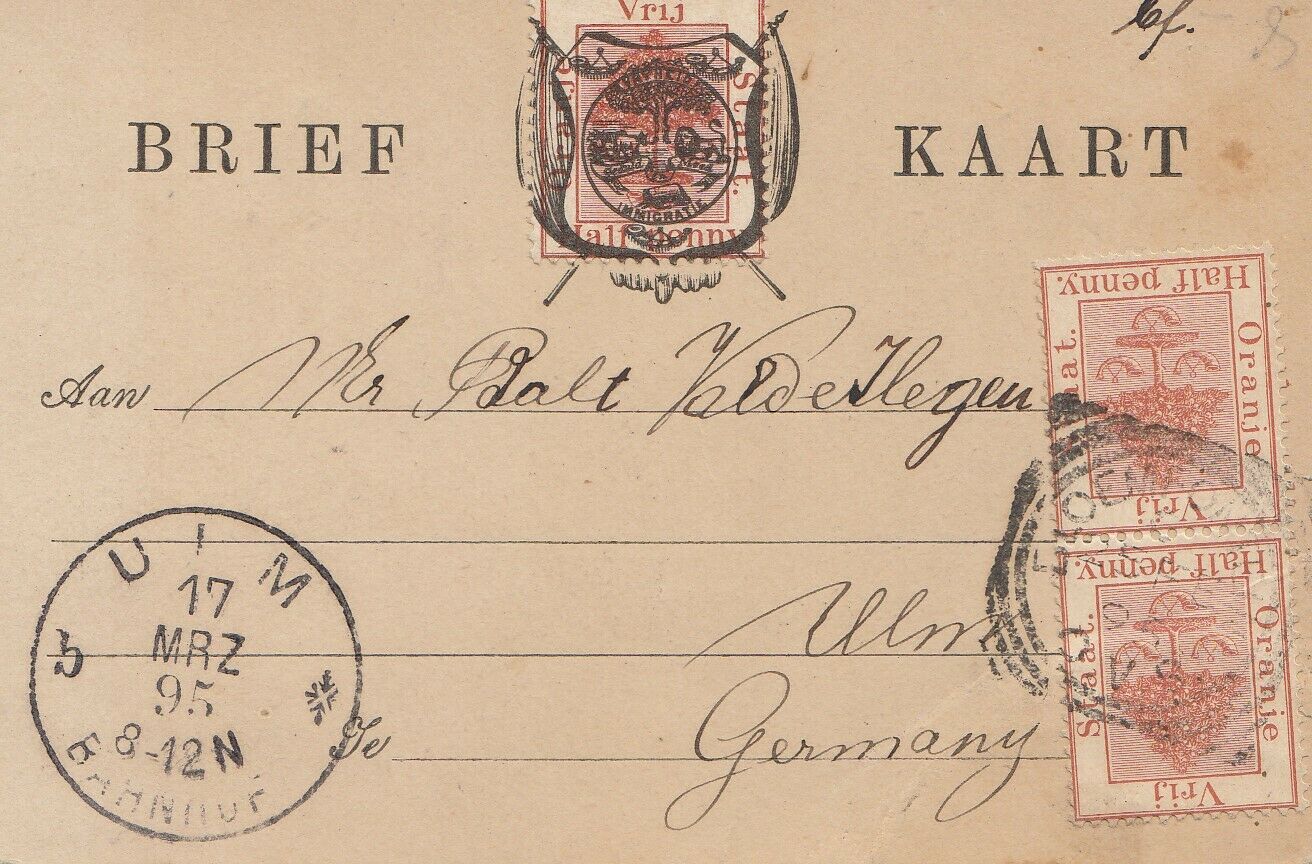 Vrij
Oranje Staat.
Half penny.
VRYHEID
IMMIGRATIE
BRIEF KAART
Half penny.
Oranje
Staat.
Vrij
Aan Mr Balt
Half penny.
Oranje
Staat.
Vrij
Ulm
Te Germany
ULM
17
MRZ
95
8-12N
BAHNHOF